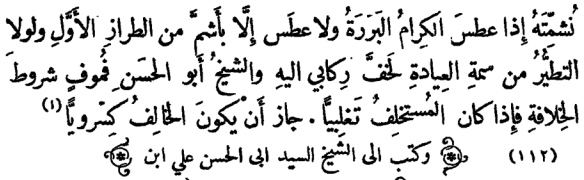 نُشمِّتَهُ إذا عطسَ الكِرامُ البَرَرَةُ ولا عطَس إلَّا بأشمَّ من الطرازِ الأوَّلِ ولولا
التطيُّرُ من سمةِ العِيادةِ لخفَّ رِكابي اليهِ والشيخُ أبو الحسَنِ فمُوفٍ شروطَ
الخِلافةِ فإذا كان المُستخلِفُ تَغلبيًّا . جاز أنْ يكونَ الخالِفُ كِسرويًّا (١)
(١١٢) وكتب الى الشيخ السيد ابى الحسن علي ابن